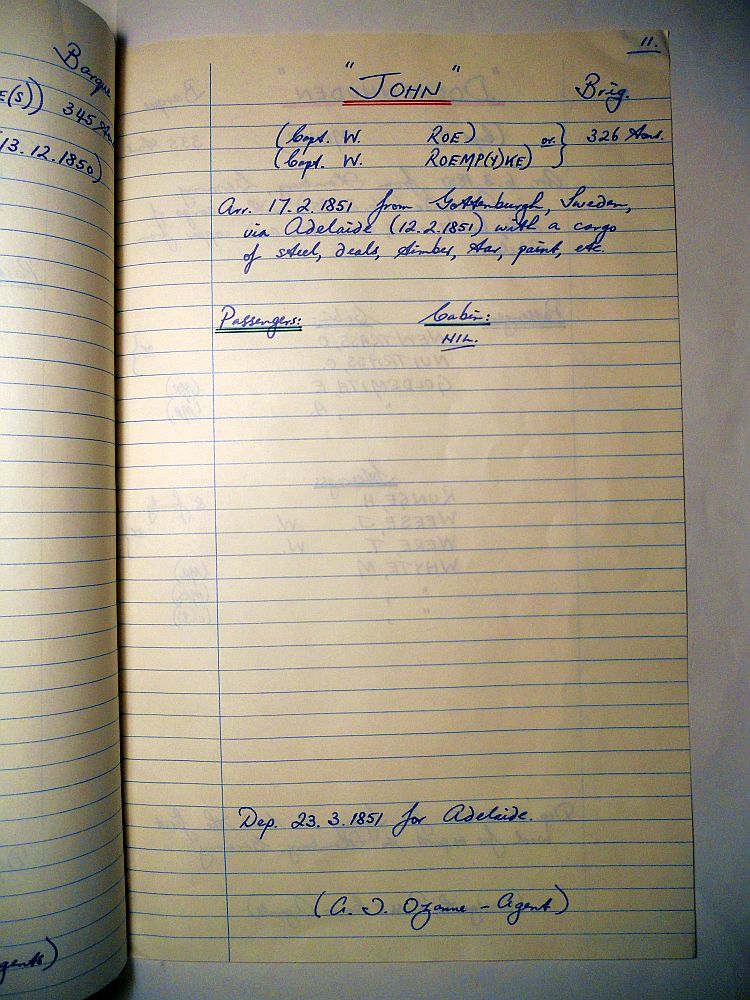 Barque
E(S)) 345
13.12.1850)
gents)
11.
"JOHN" Brig.
(Capt. W. ROE) or. } 326 tons.
(Capt. W. ROEMP(Y)KE)
Arr. 17.2.1851 from Gottenburgh, Sweden,
via Adelaide (12.2.1851) with a cargo
of steel, deals, timber, tar, paint, etc.
Passengers: Cabin:
NIL.
Dep. 23.3.1851 for Adelaide.
(A. J. Ozanne - Agent)